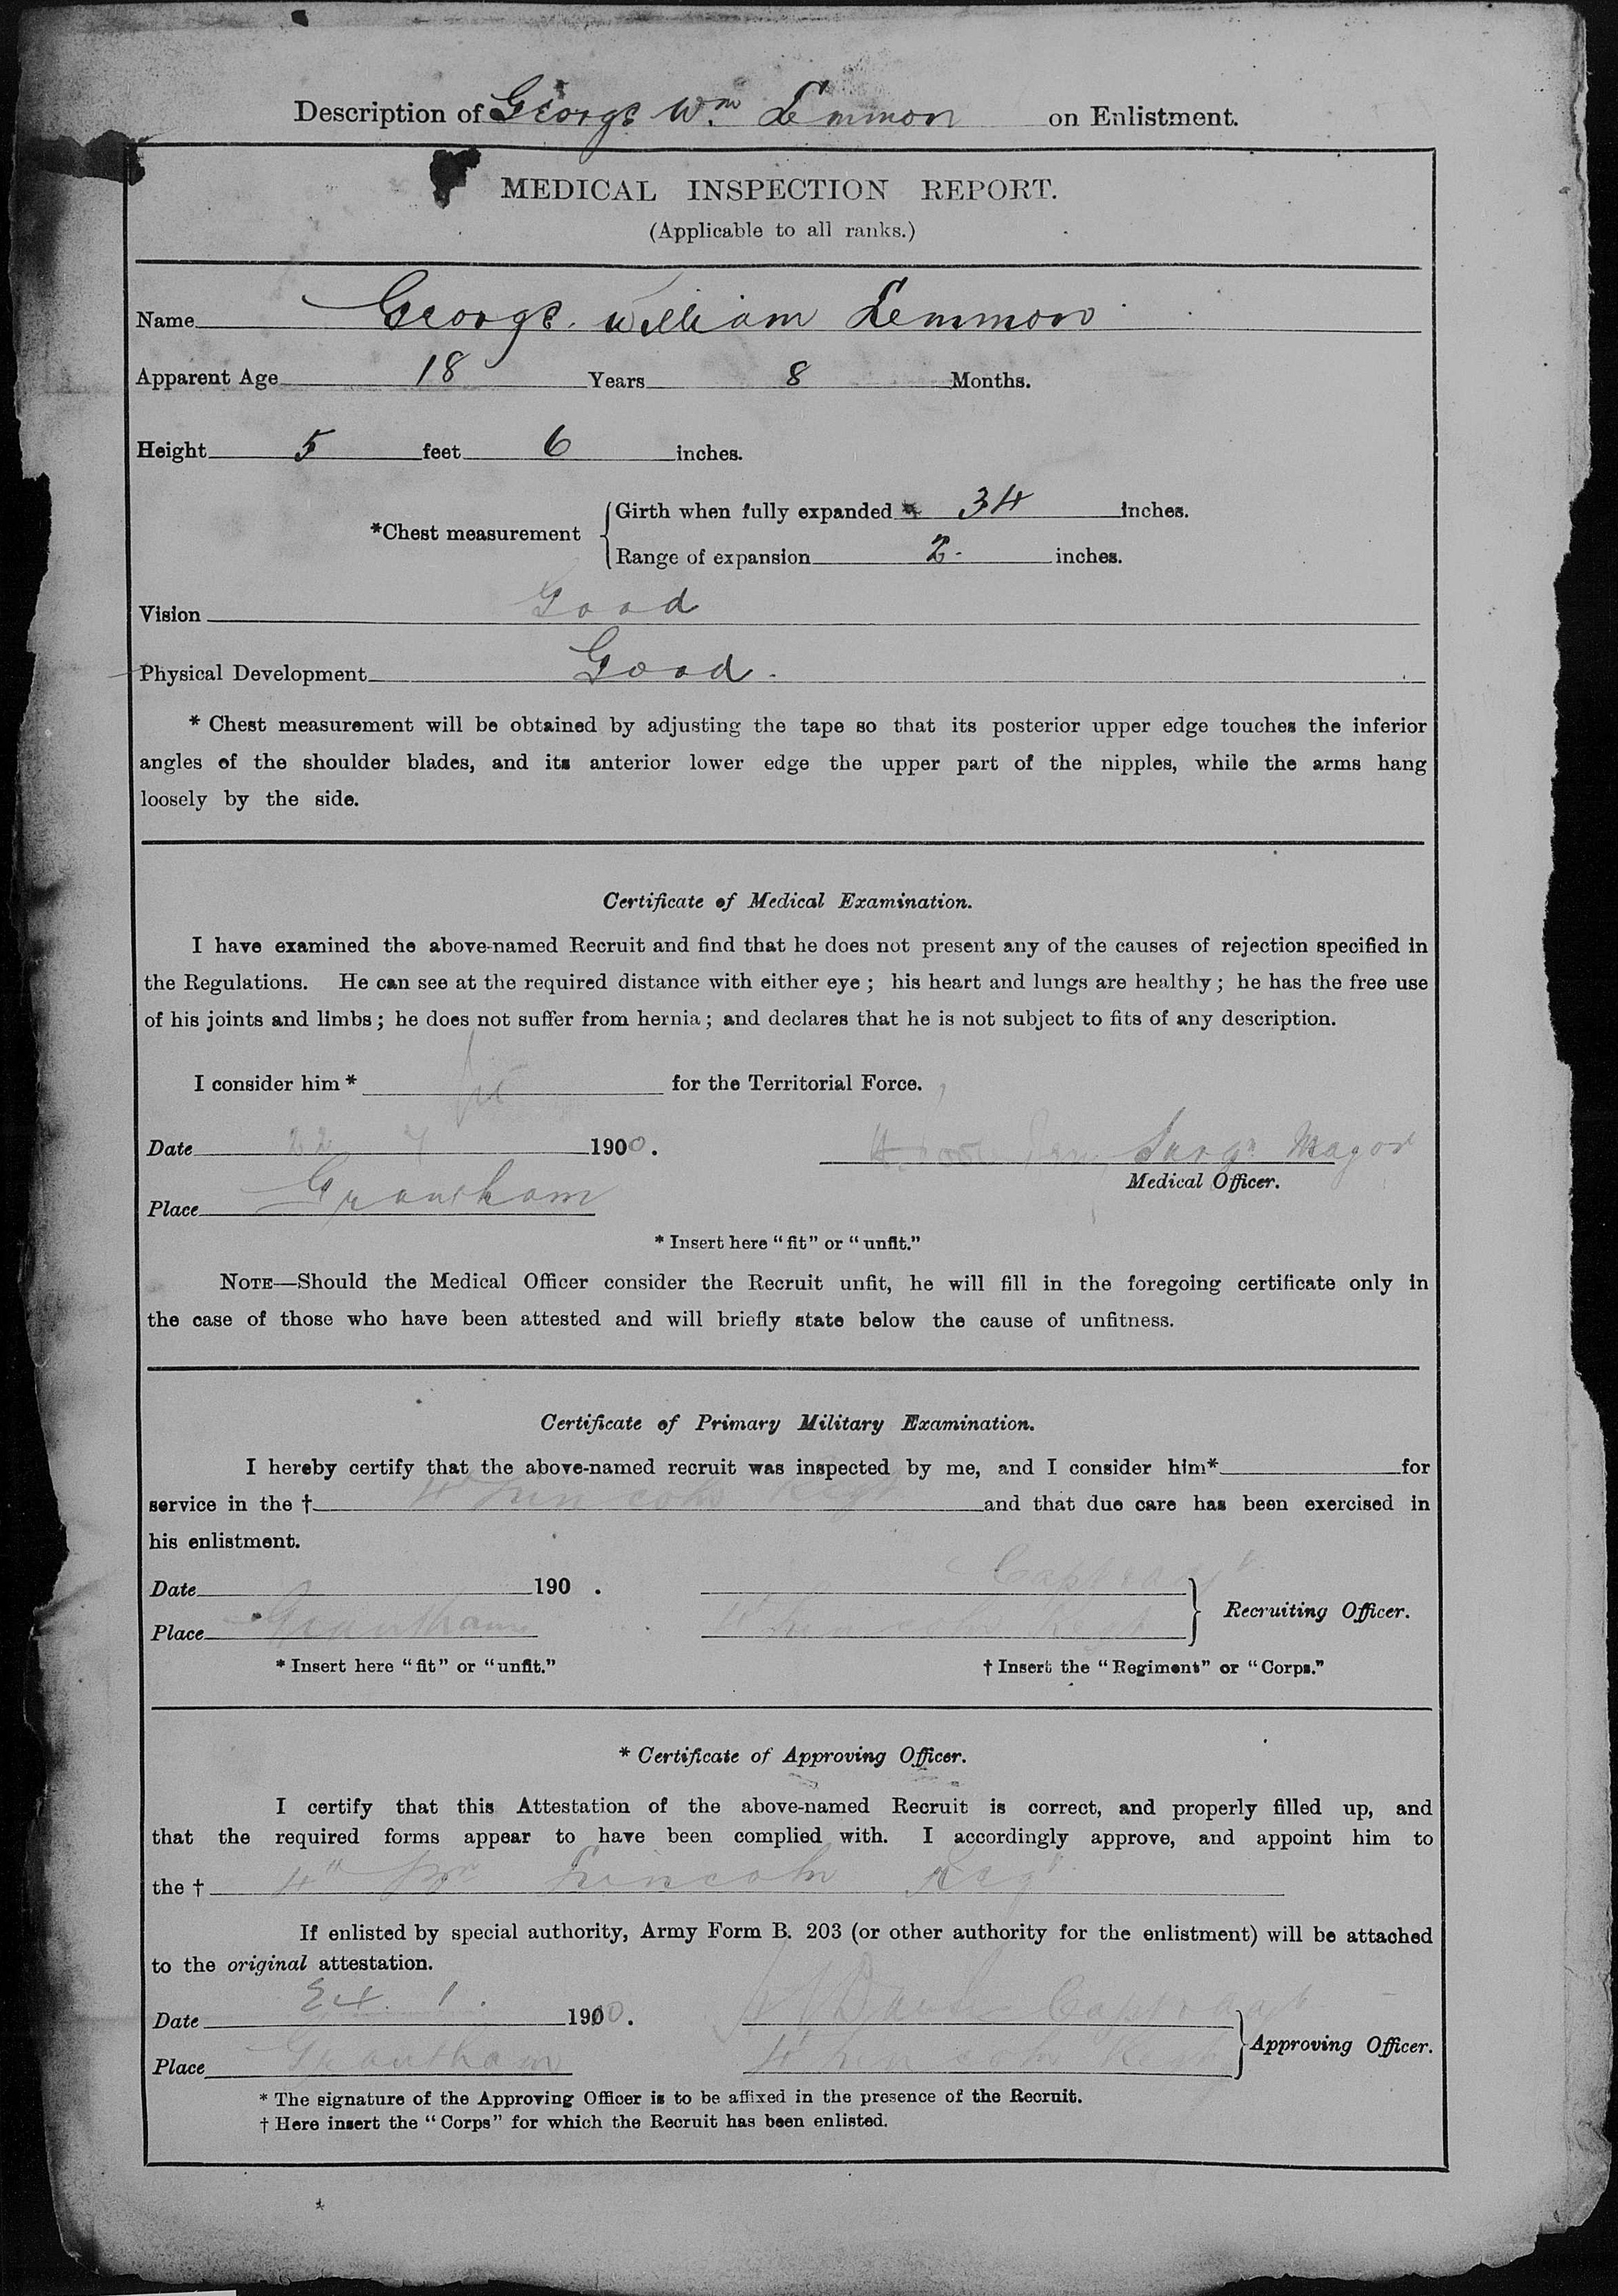 Description of George Wm Lemmon on Enlistment.
MEDICAL INSPECTION REPORT.
(Applicable to all ranks.)
Name George William Lemmon
Apparent Age 18 Years 8 Months.
Height 5 feet 6 inches.
*Chest measurement { Girth when fully expanded 34 inches.
Range of expansion 2 inches.
Vision Good
Physical Development Good.
* Chest measurement will be obtained by adjusting the tape so that its posterior upper edge touches the inferior
angles of the shoulder blades, and its anterior lower edge the upper part of the nipples, while the arms hang
loosely by the side.
Certificate of Medical Examination.
I have examined the above-named Recruit and find that he does not present any of the causes of rejection specified in
the Regulations. He can see at the required distance with either eye; his heart and lungs are healthy; he has the free use
of his joints and limbs; he does not suffer from hernia; and declares that he is not subject to fits of any description.
I consider him* fit for the Territorial Force.
Date 22 1900. Surgn Magor
Medical Officer.
Place Grantham
* Insert here "fit" or "unfit."
NOTE—Should the Medical Officer consider the Recruit unfit, he will fill in the foregoing certificate only in
the case of those who have been attested and will briefly state below the cause of unfitness.
Certificate of Primary Military Examination.
I hereby certify that the above-named recruit was inspected by me, and I consider him* for
service in the † 4 Lincoln Regt and that due care has been exercised in
his enlistment.
Date 190 . Capt
Recruiting Officer.
Place Grantham 4 Lincoln Regt
* Insert here "fit" or "unfit." † Insert the "Regiment" or "Corps."
* Certificate of Approving Officer.
I certify that this Attestation of the above-named Recruit is correct, and properly filled up, and
that the required forms appear to have been complied with. I accordingly approve, and appoint him to
the † 4th Bn Lincoln Regt
If enlisted by special authority, Army Form B. 203 (or other authority for the enlistment) will be attached
to the original attestation.
Date 24. 1. 1910. Capt
Approving Officer.
Place Grantham 4 Lincoln Regt
* The signature of the Approving Officer is to be affixed in the presence of the Recruit.
† Here insert the "Corps" for which the Recruit has been enlisted.